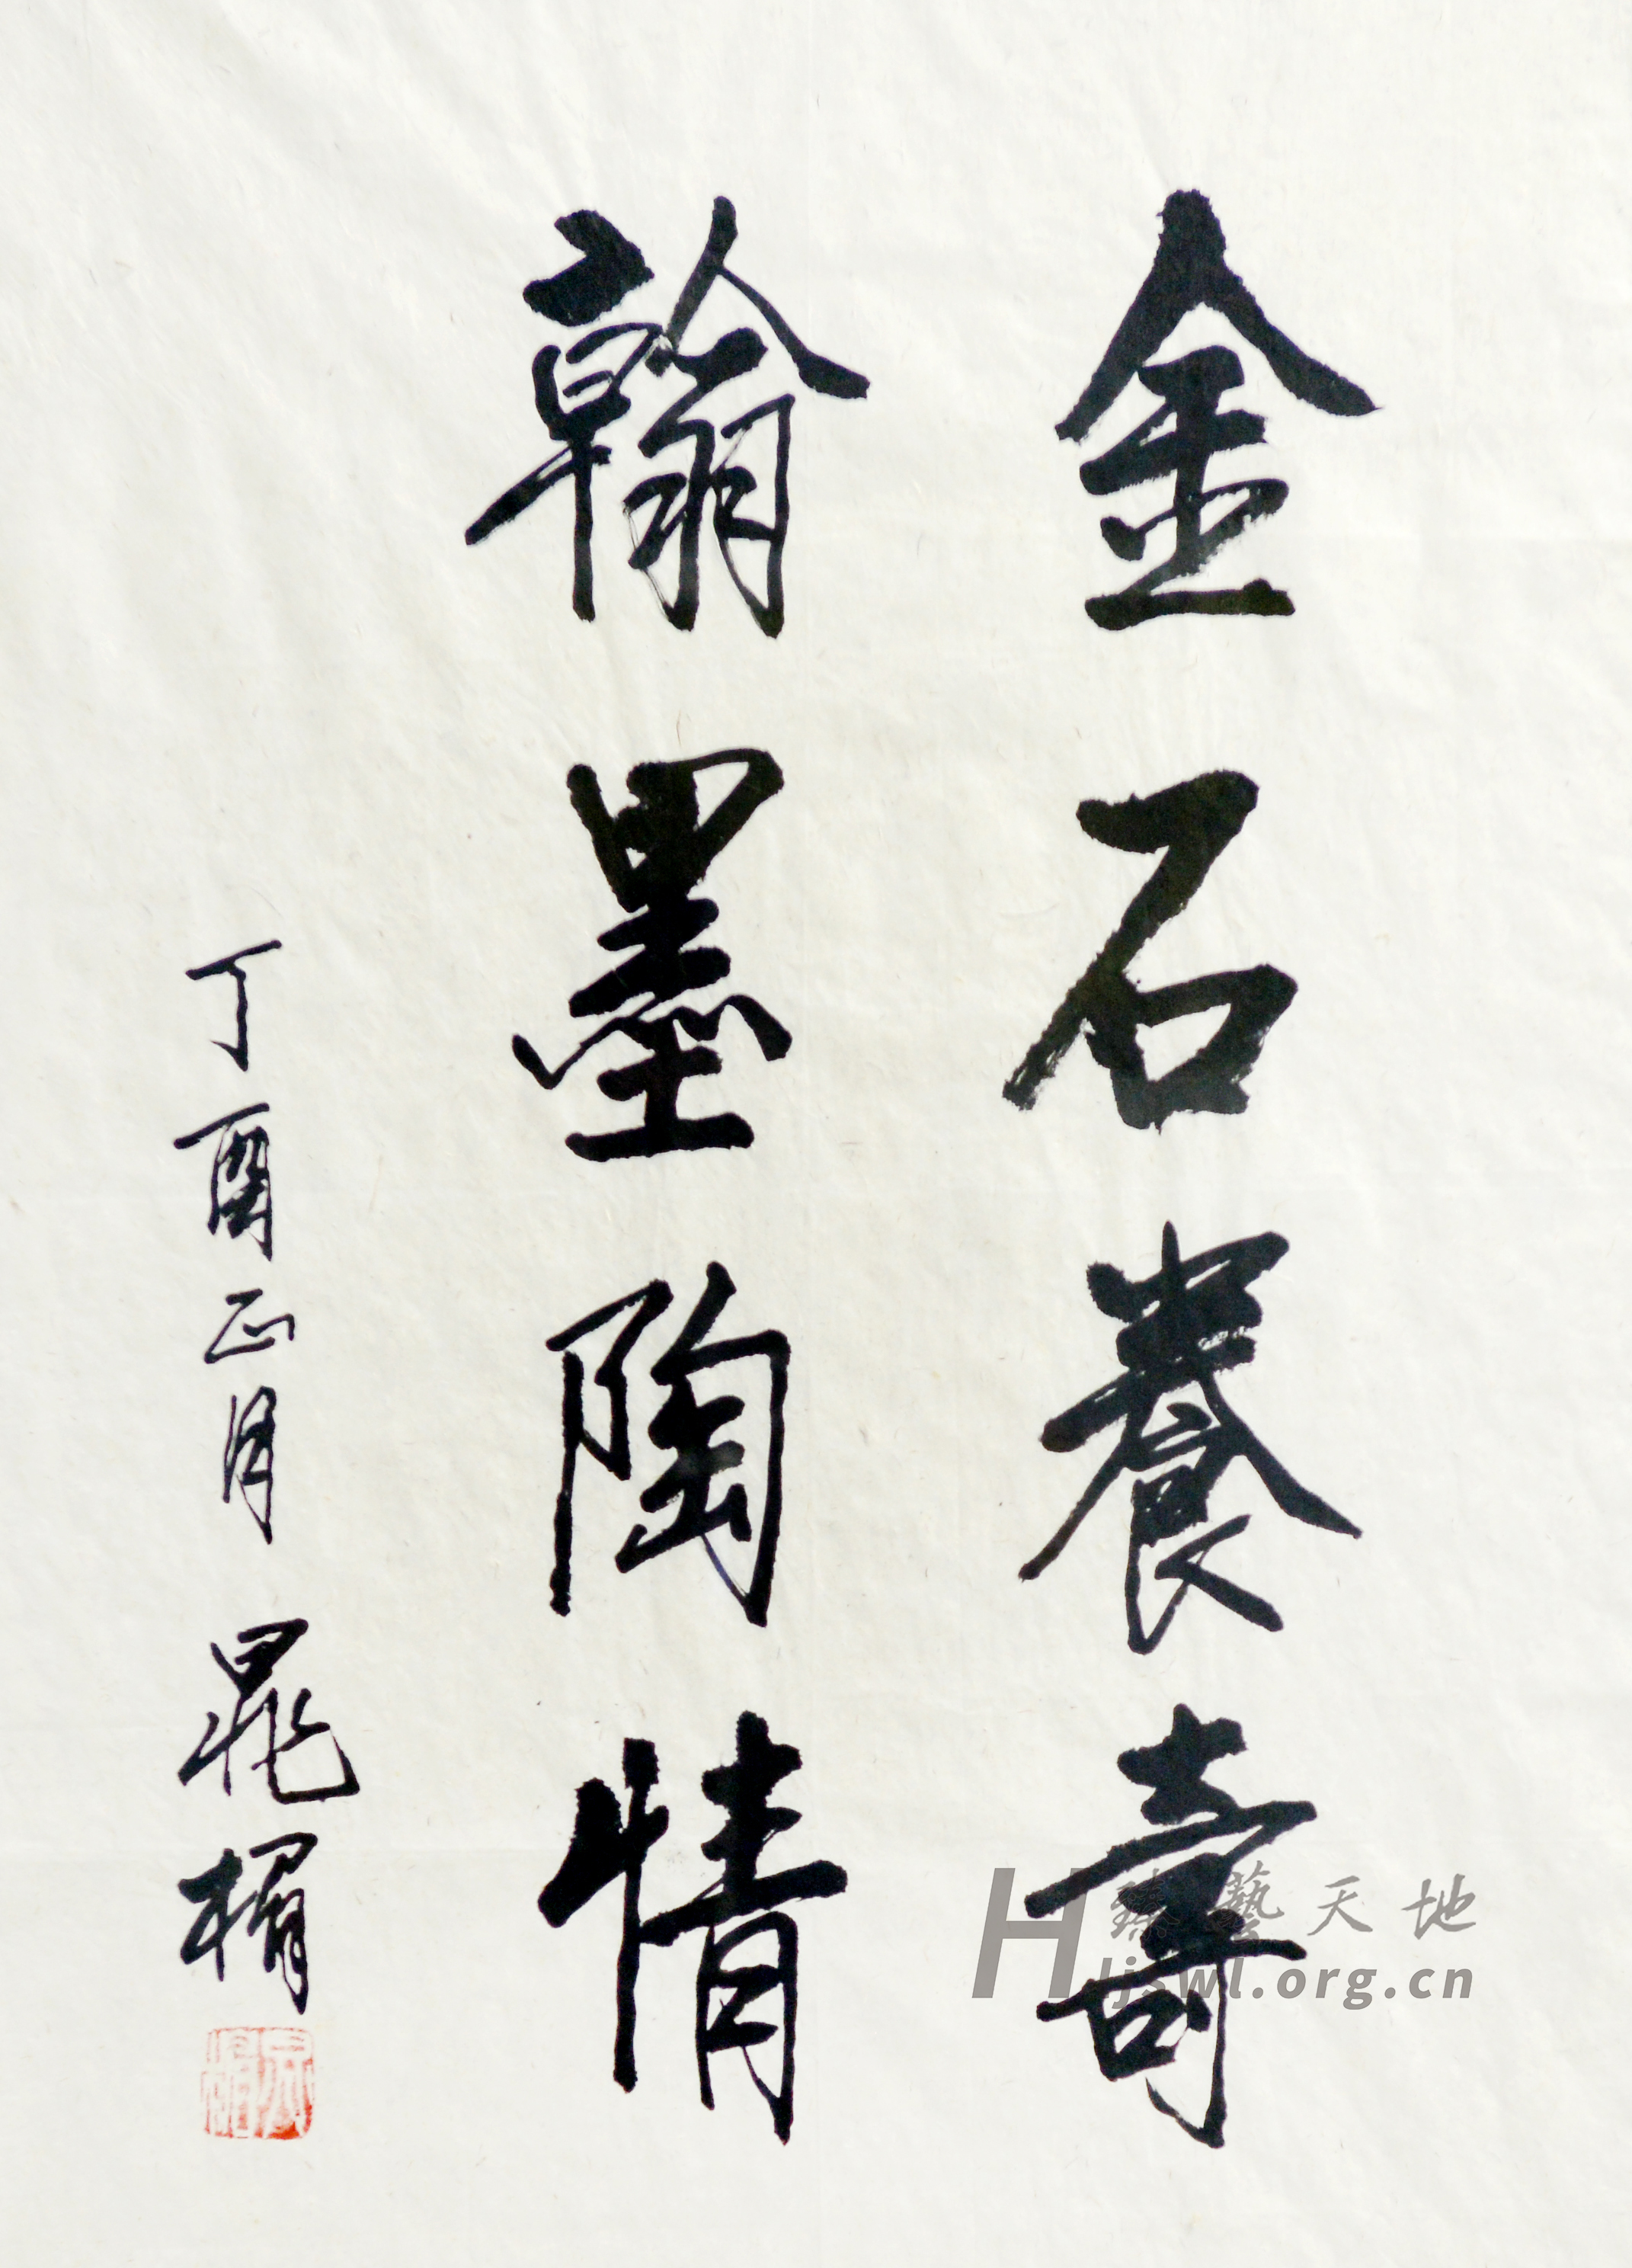 金石養壽
翰墨陶情
丁酉正月 晁楣
臻藝天地
Hljswl.org.cn